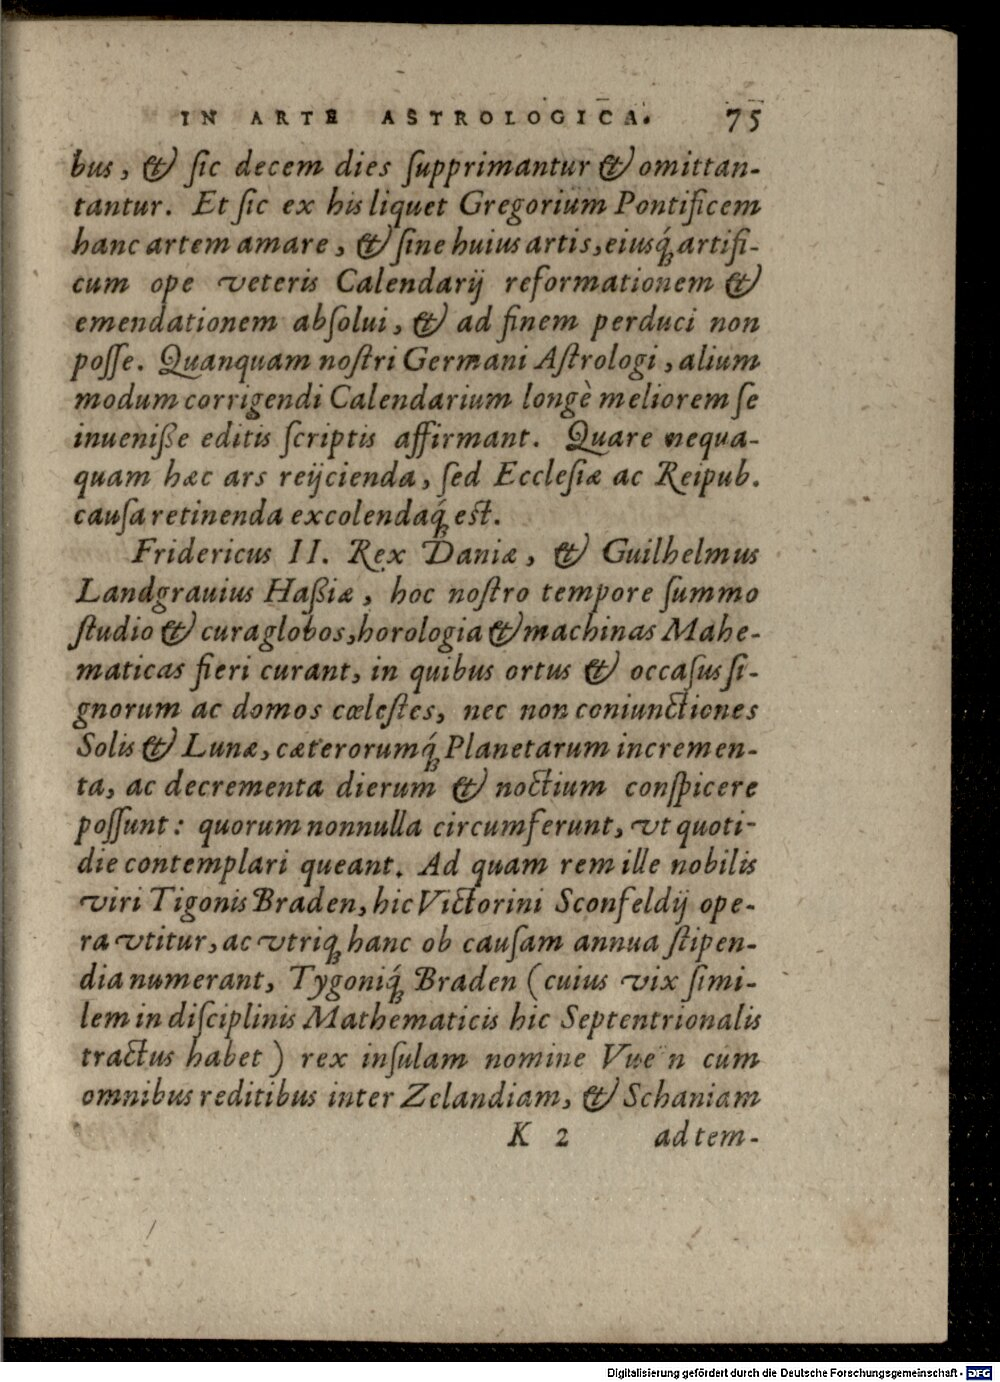 IN ARTE ASTROLOGICA. 75
bus, & sic decem dies ſupprimantur & omittan-
tantur. Et ſic ex his liquet Gregorium Pontificem
hanc artem amare, & ſine huius artis, eiusq́ꝫ artifi-
cum ope veteris Calendarij reformationem &
emendationem abſolui, & ad finem perduci non
poſſe. Quanquam noſtri Germani Aſtrologi, alium
modum corrigendi Calendarium longè meliorem ſe
inueniße editis ſcriptis affirmant. Quare nequa-
quam hæc ars reijcienda, ſed Eccleſiæ ac Reipub.
cauſa retinenda excolendaq́ꝫ est.
Fridericus II. Rex Daniæ, & Guilhelmus
Landgrauius Haßiæ, hoc noſtro tempore ſummo
ſtudio & cura globos, horologia & machinas Mahe-
maticas fieri curant, in quibus ortus & occaſus ſi-
gnorum ac domos cœleſtes, nec non coniunctiones
Solis & Lunæ, cæterorumq́ꝫ Planetarum incremen-
ta, ac decrementa dierum & noctium conſpicere
poſſunt: quorum nonnulla circumferunt, vt quoti-
die contemplari queant. Ad quam rem ille nobilis
viri Tigonis Braden, hic Victorini Sconfeldij ope-
ra vtitur, ac vtriqꝫ hanc ob cauſam annua ſtipen-
dia numerant, Tygoniq́ꝫ Braden (cuius vix ſimi-
lem in diſciplinis Mathematicis hic Septentrionalis
tractus habet) rex inſulam nomine Vueͤn cum
omnibus reditibus inter Zelandiam, & Schaniam
K 2 ad tem-
Digitalisierung gefördert durch die Deutsche Forschungsgemeinschaft - DFG